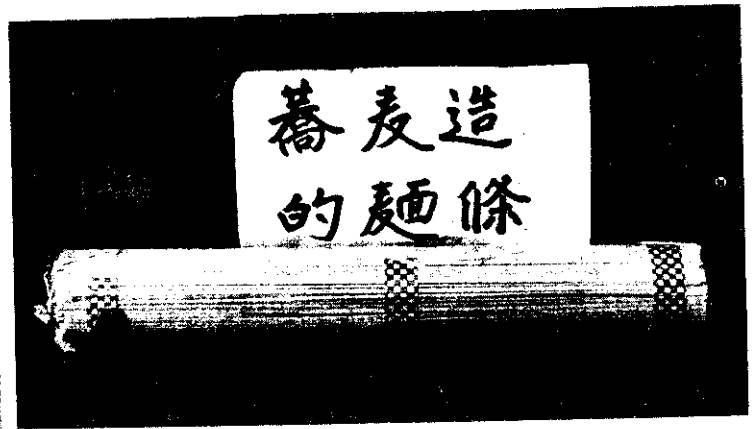 蕎麦造
的麵條